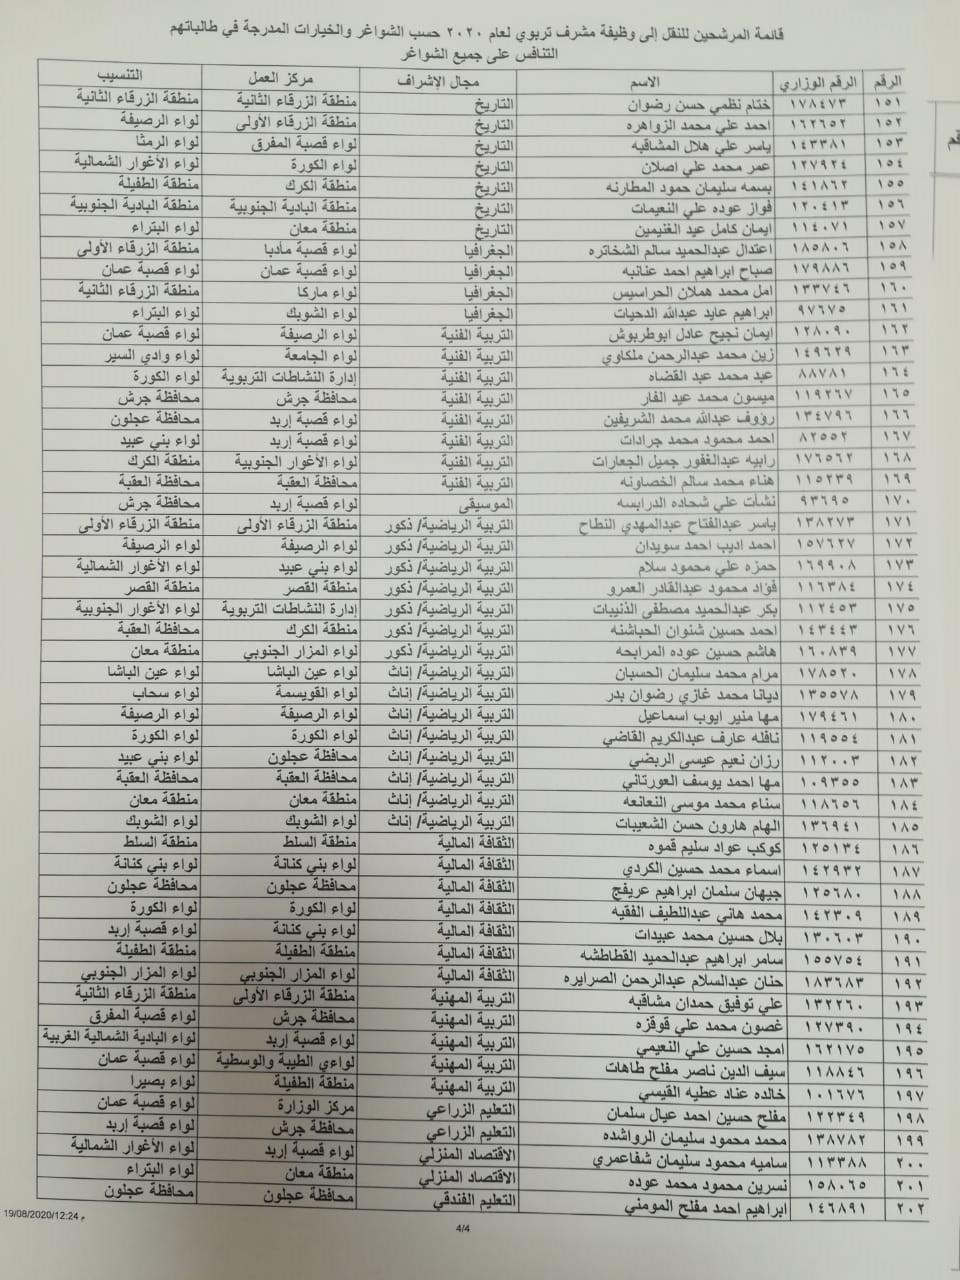 قائمة المرشحين للنقل إلى وظيفة مشرف تربوي لعام ٢٠٢٠ حسب الشواغر والخيارات المدرجة في طالباتهم
التنافس على جميع الشواغر
الرقم الرقم الوزاري الاسم مجال الإشراف مركز العمل التنسيب
١٥١ ١٧٨٤٧٣ ختام نظمي حسن رضوان التاريخ منطقة الزرقاء الثانية منطقة الزرقاء الثانية
١٥٢ ١٦٢٦٥٢ احمد علي محمد الزواهره التاريخ منطقة الزرقاء الأولى لواء الرصيفة
١٥٣ ١٤٣٣٨١ ياسر علي هلال المشاقبه التاريخ لواء قصبة المفرق لواء الرمثا
١٥٤ ١٢٧٩٢٤ عمر محمد علي اصلان التاريخ لواء الكورة لواء الأغوار الشمالية
١٥٥ ١٤١٨٦٢ بسمه سليمان حمود المطارنه التاريخ منطقة الكرك منطقة الطفيلة
١٥٦ ١٢٠٤١٣ فواز عوده علي النعيمات التاريخ منطقة البادية الجنوبية منطقة البادية الجنوبية
١٥٧ ١١٤٠٧١ ايمان كامل عيد الغنيمين التاريخ منطقة معان لواء البتراء
١٥٨ ١٨٥٨٠٦ اعتدال عبدالحميد سالم الشخاتره الجغرافيا لواء قصبة مأدبا منطقة الزرقاء الأولى
١٥٩ ١٧٩٨٨٦ صباح ابراهيم احمد عنانبه الجغرافيا لواء قصبة عمان لواء قصبة عمان
١٦٠ ١٣٣٧٤٦ امل محمد هملان الحراسيس الجغرافيا لواء ماركا منطقة الزرقاء الثانية
١٦١ ٩٧٦٧٥ ابراهيم عايد عبدالله الدحيات الجغرافيا لواء الشوبك لواء البتراء
١٦٢ ١٢٨٠٩٠ ايمان نجيح عادل ابوطربوش التربية الفنية لواء الرصيفة لواء قصبة عمان
١٦٣ ١٤٩٦٢٩ زين محمد عبدالرحمن ملكاوي التربية الفنية لواء الجامعة لواء وادي السير
١٦٤ ٨٨٧٨١ عبد محمد عبد القضاه التربية الفنية إدارة النشاطات التربوية لواء الكورة
١٦٥ ١١٩٢٦٧ ميسون محمد عيد الفار التربية الفنية محافظة جرش محافظة جرش
١٦٦ ١٣٤٧٩٦ رؤوف عبدالله محمد الشريفين التربية الفنية لواء قصبة إربد محافظة عجلون
١٦٧ ٨٢٥٥٢ احمد محمود محمد جرادات التربية الفنية لواء قصبة إربد لواء بني عبيد
١٦٨ ١٧٦٥٦٢ رابيه عبدالغفور جميل الجعارات التربية الفنية لواء الأغوار الجنوبية منطقة الكرك
١٦٩ ١١٥٢٣٩ هناء محمد سالم الخصاونه التربية الفنية محافظة العقبة محافظة العقبة
١٧٠ ٩٣٦٩٥ نشأت علي شحاده الدرابسه الموسيقى لواء قصبة إربد محافظة جرش
١٧١ ١٣٨٢٧٣ ياسر عبدالفتاح عبدالمهدي النطاح التربية الرياضية/ ذكور منطقة الزرقاء الأولى منطقة الزرقاء الأولى
١٧٢ ١٥٧٦٢٧ احمد اديب احمد سويدان التربية الرياضية/ ذكور لواء الرصيفة لواء الرصيفة
١٧٣ ١٦٩٩٠٨ حمزه علي محمود سلام التربية الرياضية/ ذكور لواء بني عبيد لواء الأغوار الشمالية
١٧٤ ١١٦٣٨٤ فؤاد محمود عبدالقادر العمرو التربية الرياضية/ ذكور منطقة القصر منطقة القصر
١٧٥ ١١٢٤٥٣ بكر عبدالحميد مصطفى الذنيبات التربية الرياضية/ ذكور إدارة النشاطات التربوية لواء الأغوار الجنوبية
١٧٦ ١٤٣٤٤٣ احمد حسين شنوان الحباشنه التربية الرياضية/ ذكور منطقة الكرك محافظة العقبة
١٧٧ ١٦٠٨٣٩ هاشم حسين عوده المرابحه التربية الرياضية/ ذكور لواء المزار الجنوبي منطقة معان
١٧٨ ١٧٨٥٢٠ مرام محمد سليمان الحسبان التربية الرياضية/ إناث لواء عين الباشا لواء عين الباشا
١٧٩ ١٣٥٥٧٨ ديانا محمد غازي رضوان بدر التربية الرياضية/ إناث لواء القويسمة لواء سحاب
١٨٠ ١٧٩٤٦١ مها منير ايوب اسماعيل التربية الرياضية/ إناث لواء الرصيفة لواء الرصيفة
١٨١ ١١٩٥٥٤ نافله عارف عبدالكريم القاضي التربية الرياضية/ إناث لواء الكورة لواء الكورة
١٨٢ ١١٢٠٠٣ رزان نعيم عيسى الربضي التربية الرياضية/ إناث محافظة عجلون لواء بني عبيد
١٨٣ ١٠٩٣٥٥ مها احمد يوسف العورتاني التربية الرياضية/ إناث محافظة العقبة محافظة العقبة
١٨٤ ١١٨٦٥٦ سناء محمد موسى النعانعه التربية الرياضية/ إناث منطقة معان منطقة معان
١٨٥ ١٣٦٩٤١ الهام هارون حسن الشعيبات التربية الرياضية/ إناث لواء الشوبك لواء الشوبك
١٨٦ ١٢٥١٣٤ كوكب عواد سليم قموه الثقافة المالية منطقة السلط منطقة السلط
١٨٧ ١٤٢٩٣٢ اسماء محمد حسين الكردي الثقافة المالية لواء بني كنانة لواء بني كنانة
١٨٨ ١٢٥٦٨٠ جيهان سلمان ابراهيم عريفج الثقافة المالية محافظة عجلون محافظة عجلون
١٨٩ ١٤٢٣٠٩ محمد هاني عبداللطيف الفقيه الثقافة المالية لواء الكورة لواء الكورة
١٩٠ ١٣٠٦٠٣ بلال حسين محمد عبيدات الثقافة المالية لواء بني كنانة لواء قصبة إربد
١٩١ ١٥٥٧٥٤ سامر ابراهيم عبدالحميد القطاطشه الثقافة المالية منطقة الطفيلة منطقة الطفيلة
١٩٢ ١٨٣٦٨٣ حنان عبدالسلام عبدالرحمن الصرايره الثقافة المالية لواء المزار الجنوبي لواء المزار الجنوبي
١٩٣ ١٣٢٢٦٠ علي توفيق حمدان مشاقبه التربية المهنية منطقة الزرقاء الأولى منطقة الزرقاء الثانية
١٩٤ ١٢٧٣٩٠ غصون محمد علي قوقزه التربية المهنية محافظة جرش لواء قصبة المفرق
١٩٥ ١٦٢١٧٥ امجد حسين علي النعيمي التربية المهنية لواء قصبة إربد لواء البادية الشمالية الغربية
١٩٦ ١١٨٨٤٦ سيف الدين ناصر مفلح طاهات التربية المهنية لواءي الطيبة والوسطية لواء قصبة عمان
١٩٧ ١٠١٦٧٦ خالده عناد عطيه القيسي التربية المهنية منطقة الطفيلة لواء بصيرا
١٩٨ ١٢٢٣٤٩ مفلح حسين احمد عيال سلمان التعليم الزراعي مركز الوزارة لواء قصبة عمان
١٩٩ ١٣٨٧٨٢ محمد محمود سليمان الرواشده التعليم الزراعي محافظة جرش لواء قصبة إربد
٢٠٠ ١١٣٣٨٨ ساميه محمود سليمان شفاعمري الاقتصاد المنزلي لواء قصبة إربد لواء الأغوار الشمالية
٢٠١ ١٥٨٠٦٥ نسرين محمود محمد عوده الاقتصاد المنزلي منطقة معان لواء البتراء
٢٠٢ ١٤٦٨٩١ ابراهيم احمد مفلح المومني التعليم الفندقي محافظة عجلون محافظة عجلون
19/08/2020/12:24 م
4/4